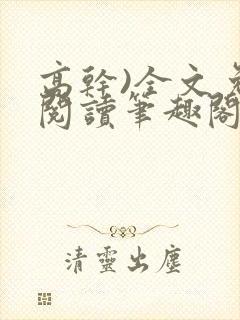 高幹)全文免
閱讀筆趣閣
清靈出塵